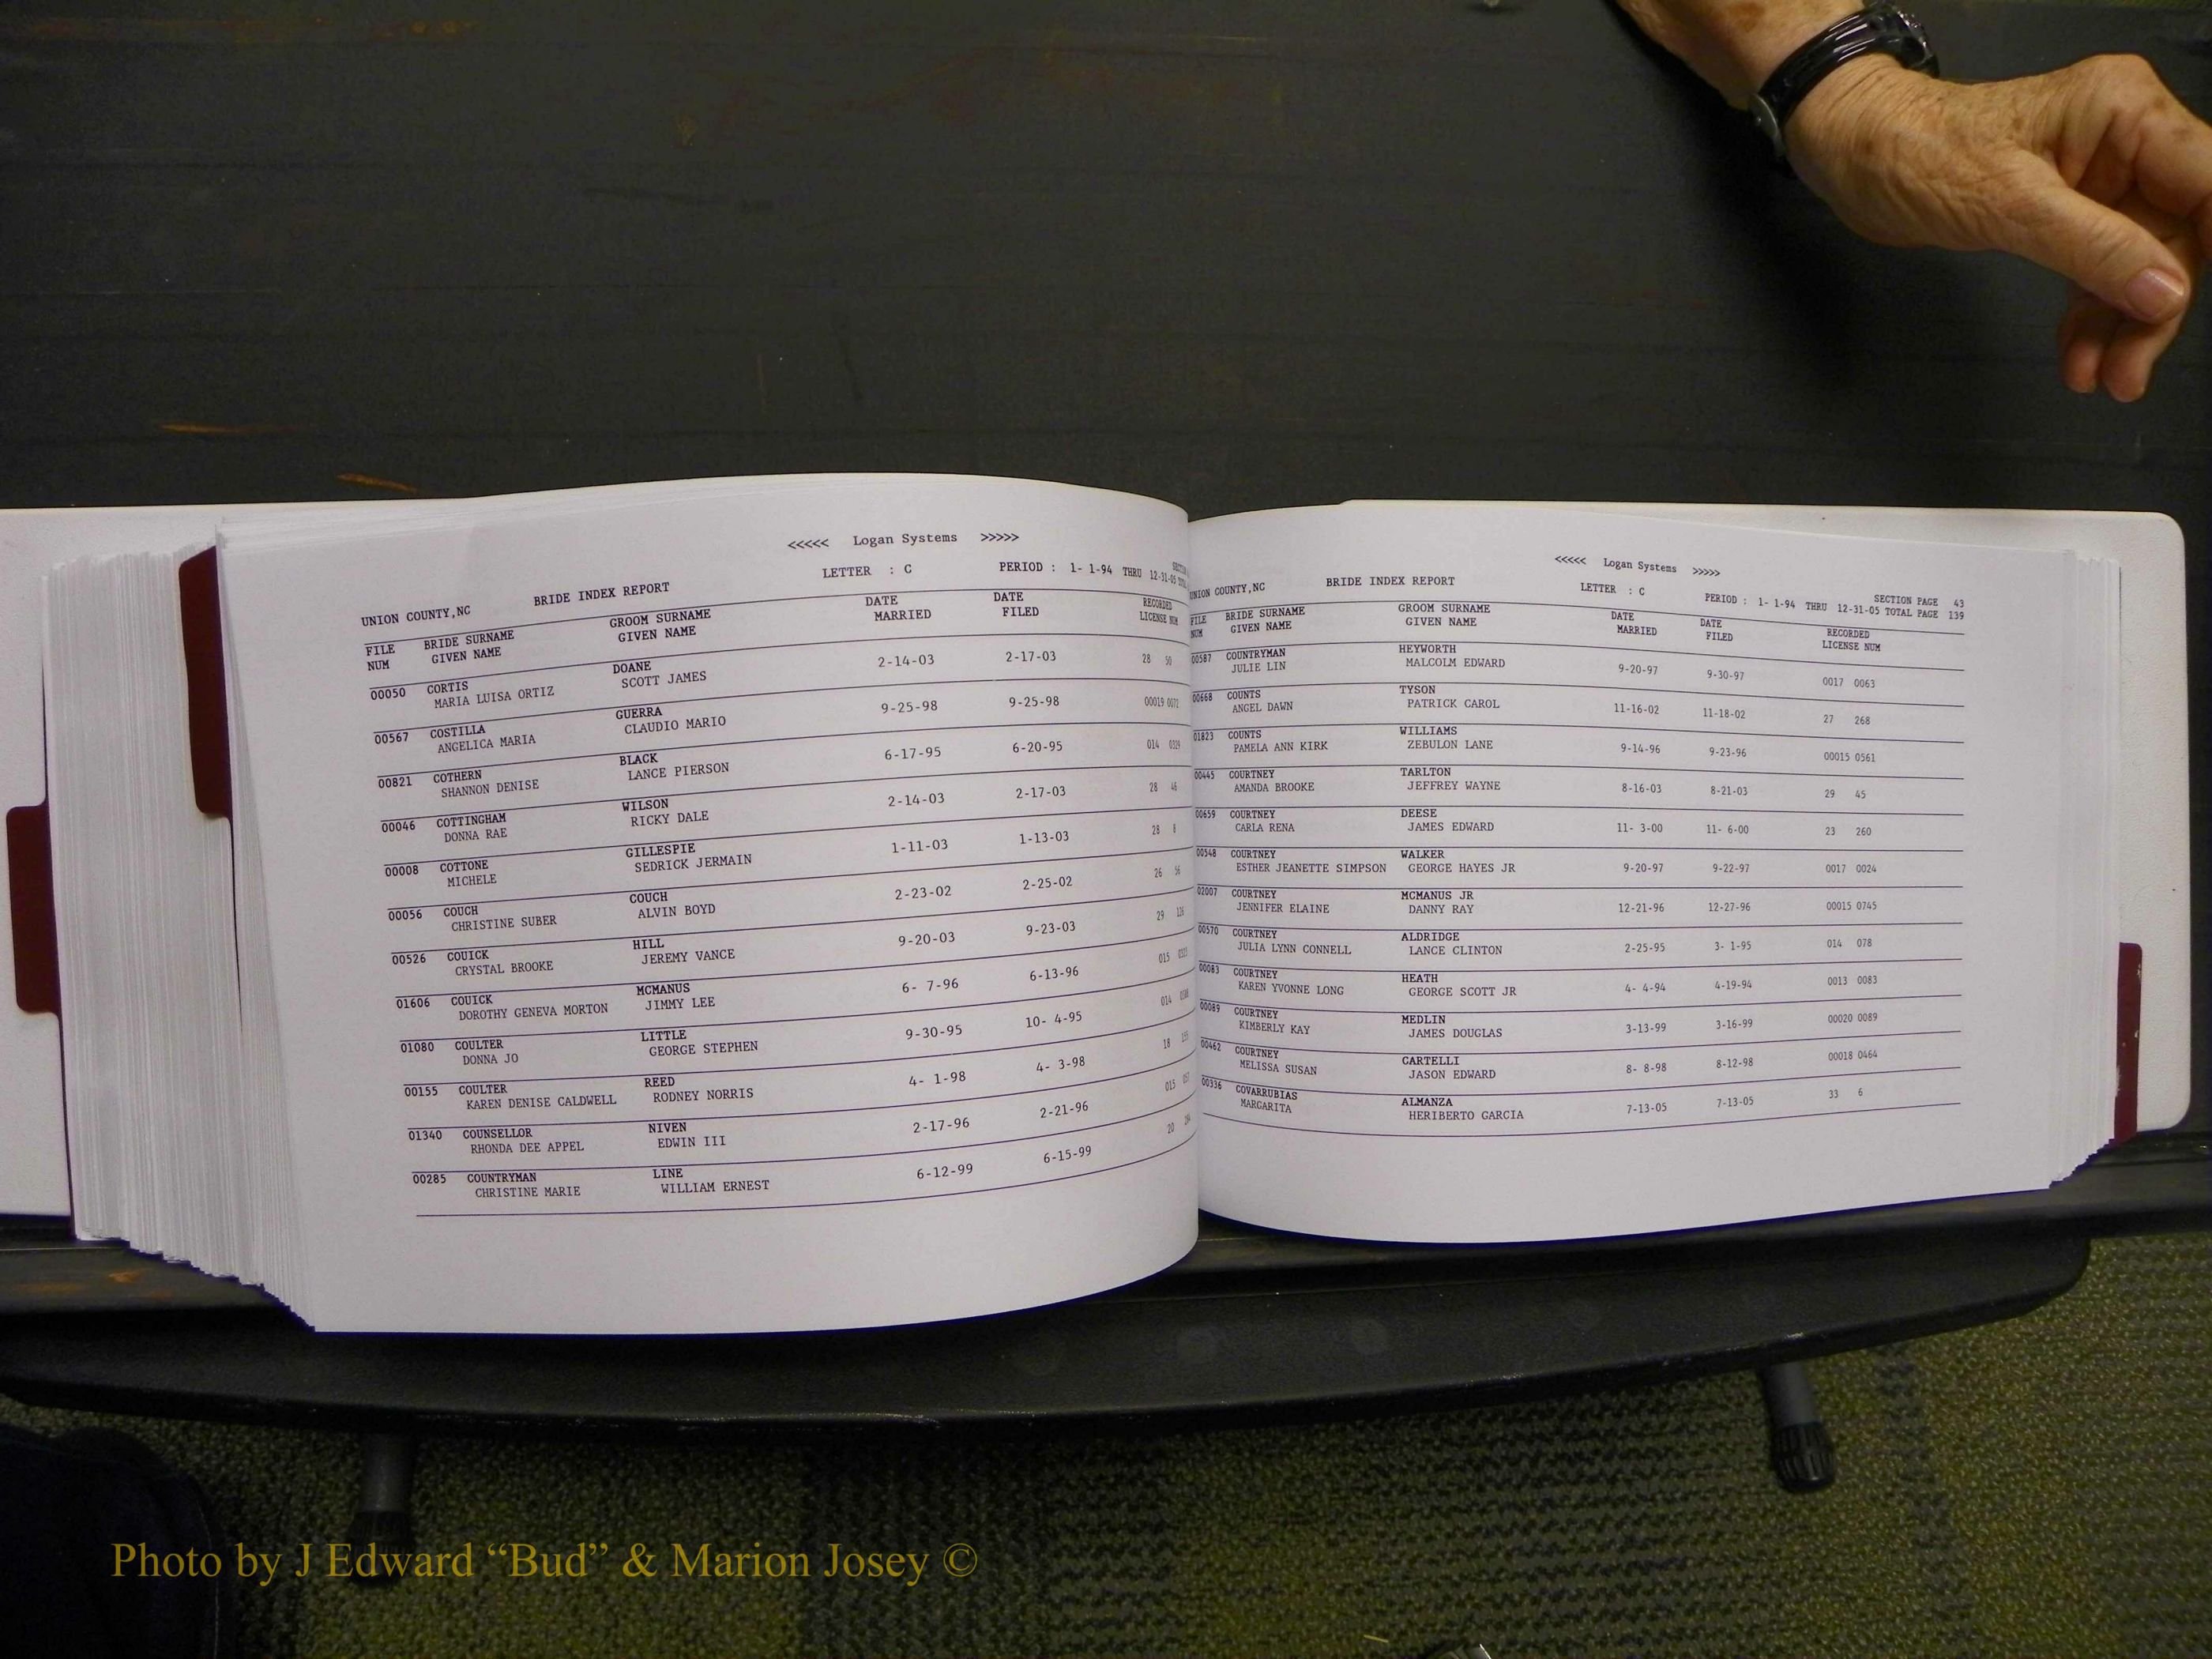 <<<<< Logan Systems >>>>>
UNION COUNTY,NC BRIDE INDEX REPORT LETTER : C PERIOD : 1- 1-94 THRU 12-31-05
FILE BRIDE SURNAME GROOM SURNAME DATE DATE RECORDED
NUM GIVEN NAME GIVEN NAME MARRIED FILED LICENSE NUM
00050 CORTIS DOANE 2-14-03 2-17-03 28 50
MARIA LUISA ORTIZ SCOTT JAMES
00567 COSTILLA GUERRA 9-25-98 9-25-98 00019
ANGELICA MARIA CLAUDIO MARIO
00821 COTHERN BLACK 6-17-95 6-20-95 014
SHANNON DENISE LANCE PIERSON
00046 COTTINGHAM WILSON 2-14-03 2-17-03 28 46
DONNA RAE RICKY DALE
00008 COTTONE GILLESPIE 1-11-03 1-13-03 28 8
MICHELE SEDRICK JERMAIN
00056 COUCH COUCH 2-23-02 2-25-02 26 56
CHRISTINE SUBER ALVIN BOYD
00526 COUICK HILL 9-20-03 9-23-03 29
CRYSTAL BROOKE JEREMY VANCE
01606 COUICK MCMANUS 6- 7-96 6-13-96 015
DOROTHY GENEVA MORTON JIMMY LEE
01080 COULTER LITTLE 9-30-95 10- 4-95 014
DONNA JO GEORGE STEPHEN
00155 COULTER REED 4- 1-98 4- 3-98 18
KAREN DENISE CALDWELL RODNEY NORRIS
01340 COUNSELLOR NIVEN 2-17-96 2-21-96 015
RHONDA DEE APPEL EDWIN III
00285 COUNTRYMAN LINE 6-12-99 6-15-99 20
CHRISTINE MARIE WILLIAM ERNEST
<<<<< Logan Systems >>>>>
UNION COUNTY,NC BRIDE INDEX REPORT LETTER : C SECTION PAGE 43
PERIOD : 1- 1-94 THRU 12-31-05 TOTAL PAGE 139
FILE BRIDE SURNAME GROOM SURNAME DATE DATE RECORDED
NUM GIVEN NAME GIVEN NAME MARRIED FILED LICENSE NUM
00587 COUNTRYMAN HEYWORTH 9-20-97 9-30-97 0017 0063
JULIE LIN MALCOLM EDWARD
00668 COUNTS TYSON 11-16-02 11-18-02 27 268
ANGEL DAWN PATRICK CAROL
01823 COUNTS WILLIAMS 9-14-96 9-23-96 00015 0561
PAMELA ANN KIRK ZEBULON LANE
00445 COURTNEY TARLTON 8-16-03 8-21-03 29 45
AMANDA BROOKE JEFFREY WAYNE
00659 COURTNEY DEESE 11- 3-00 11- 6-00 23 260
CARLA RENA JAMES EDWARD
00548 COURTNEY WALKER 9-20-97 9-22-97 0017 0024
ESTHER JEANETTE SIMPSON GEORGE HAYES JR
02007 COURTNEY MCMANUS JR 12-21-96 12-27-96 00015 0745
JENNIFER ELAINE DANNY RAY
00570 COURTNEY ALDRIDGE 2-25-95 3- 1-95 014 078
JULIA LYNN CONNELL LANCE CLINTON
00083 COURTNEY HEATH 4- 4-94 4-19-94 0013 0083
KAREN YVONNE LONG GEORGE SCOTT JR
00089 COURTNEY MEDLIN 3-13-99 3-16-99 00020 0089
KIMBERLY KAY JAMES DOUGLAS
00462 COURTNEY CARTELLI 8- 8-98 8-12-98 00018 0464
MELISSA SUSAN JASON EDWARD
00336 COVARRUBIAS ALMANZA 7-13-05 7-13-05 33 6
MARGARITA HERIBERTO GARCIA
Photo by J Edward “Bud” & Marion Josey ©